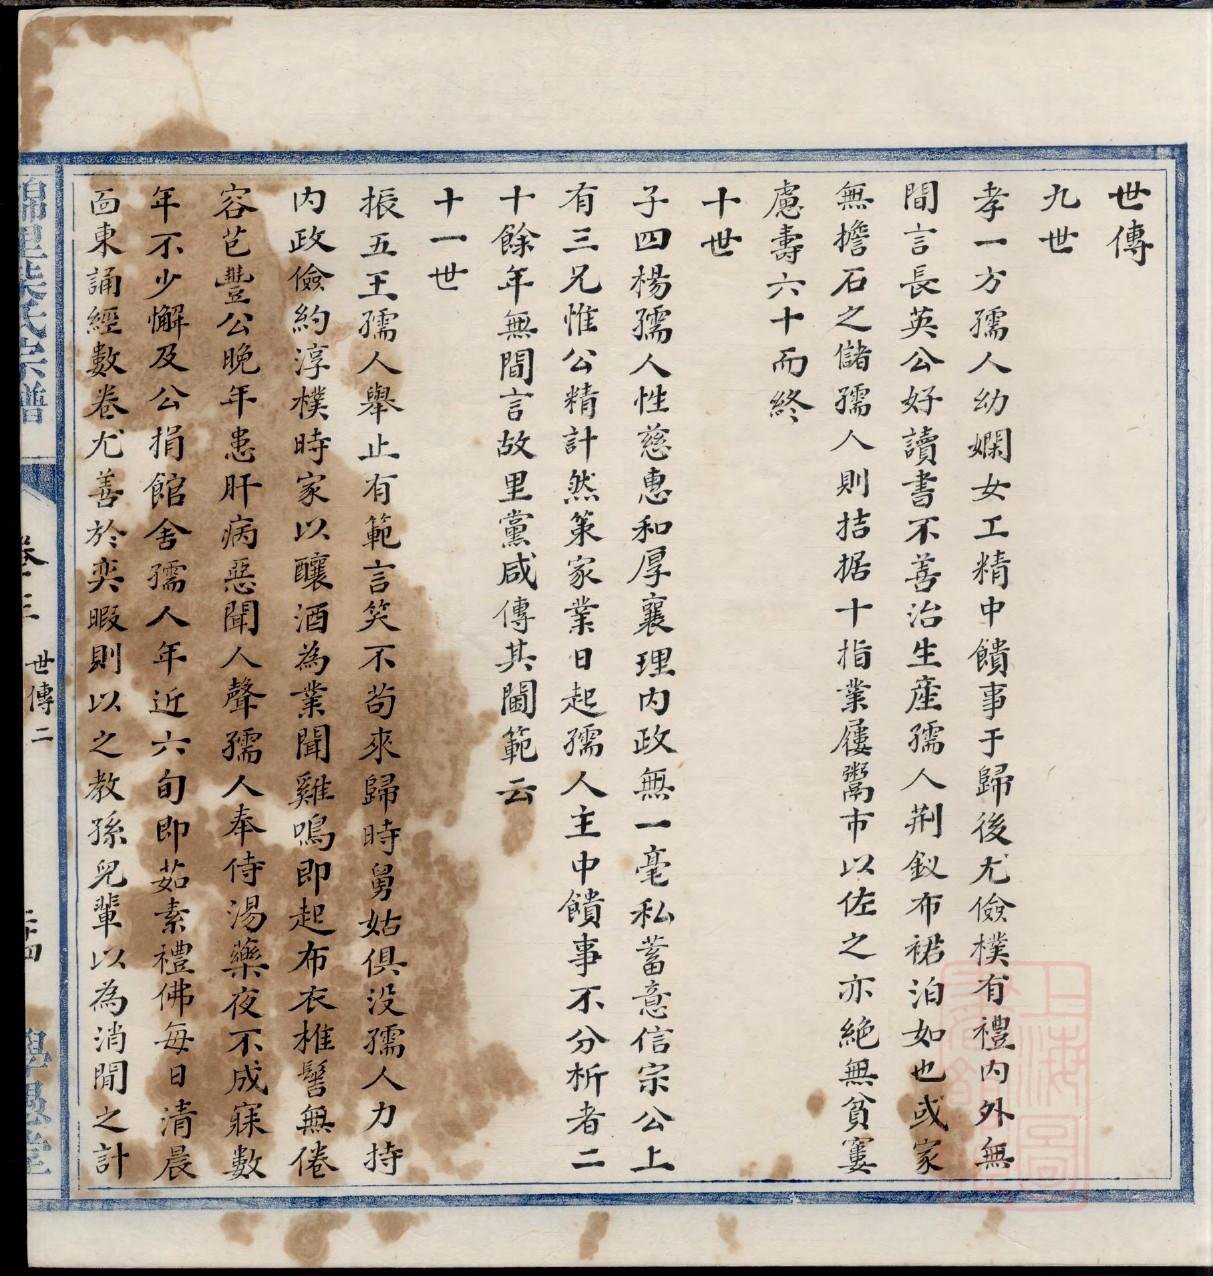 世傳
九世
孝一方孺人幼嫻女工精中饋事于歸後尤儉樸有禮內外無
間言長英公好讀書不善治生產孺人荊釵布裙泊如也或家
無擔石之儲孺人則拮据十指業屨鬻市以佐之亦絕無貧窶
慮壽六十而終
十世
子四楊孺人性慈惠和厚襄理內政無一毫私蓄意信宗公上
有三兄惟公精計然策家業日起孺人主中饋事不分析者二
十餘年無間言故里黨咸傳其閫範云
十一世
振五王孺人舉止有範言笑不苟來歸時舅姑俱没孺人力持
内政儉約淳樸時家以釀酒為業聞雞鳴即起布衣椎髻無倦
容芑豐公晚年患肝病惡聞人聲孺人奉侍湯藥夜不成寐數
年不少懈及公捐館舍孺人年近六旬即茹素禮佛每日清晨
面東誦經數卷尤善於奕暇則以之教孫兒輩以為消閒之計
氏宗譜
卷十三
世傳二